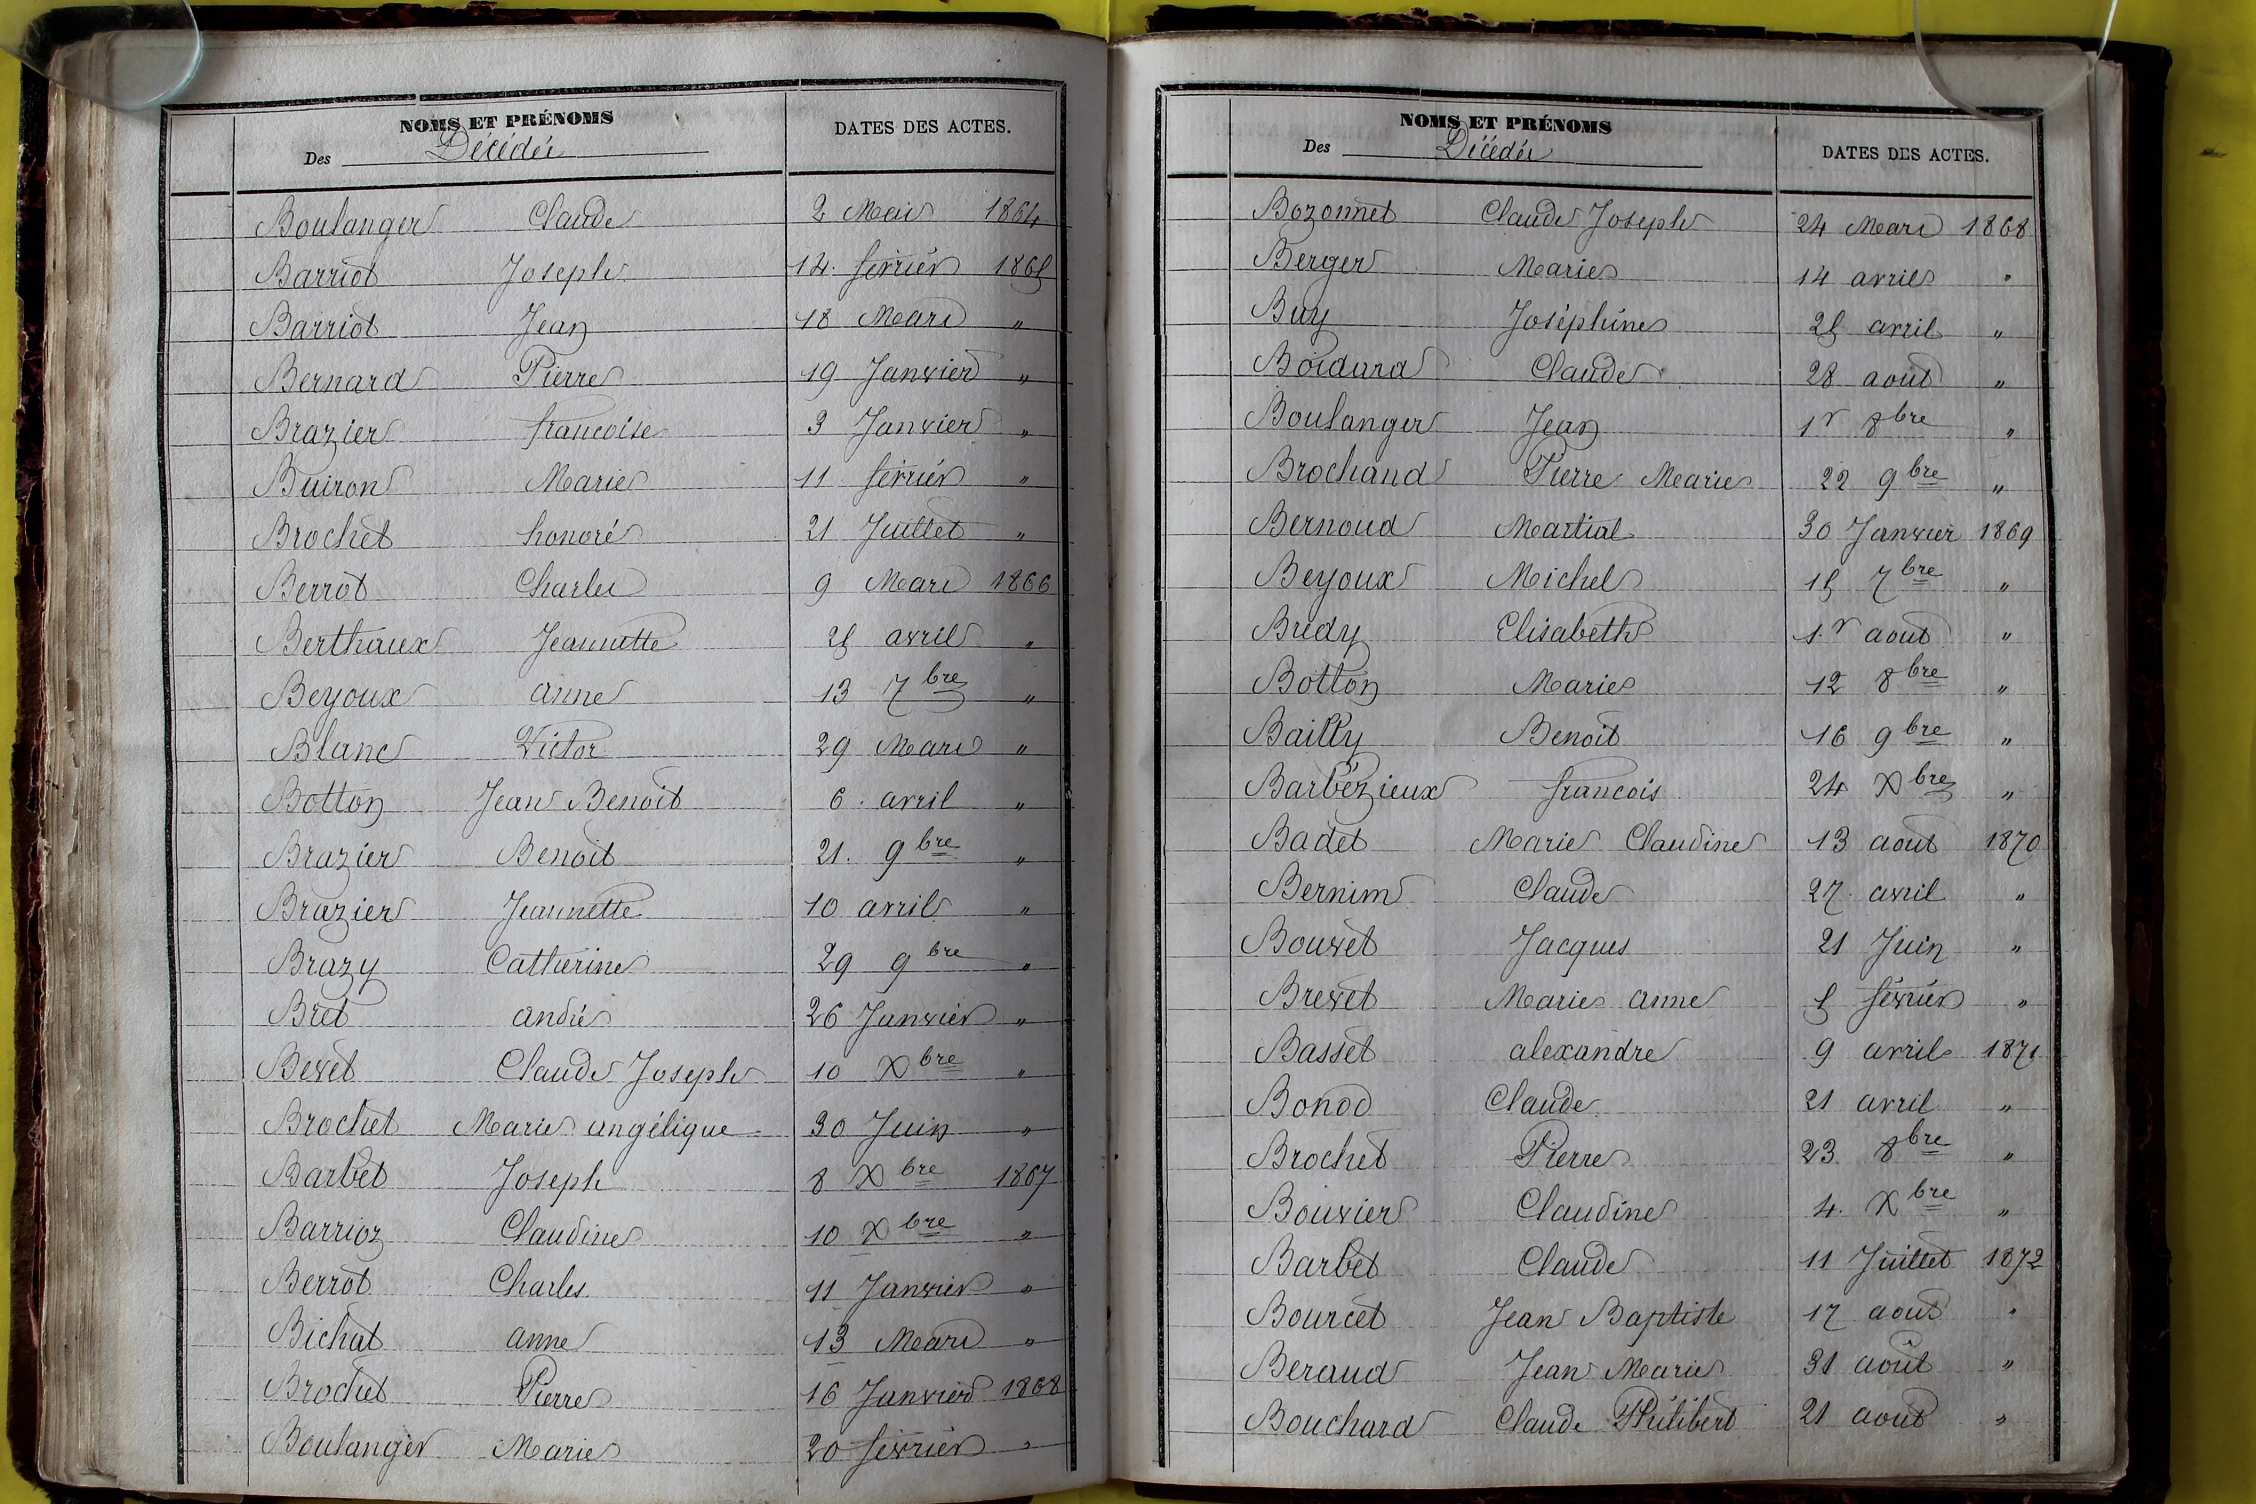 NOMS ET PRÉNOMS
Des Décédés
DATES DES ACTES.
Boulanger Claude 2 Mars 1864
Barriot Joseph 14. février 1865
Barriot Jean 18 Mars "
Bernard Pierre 19 Janvier "
Brazier francoise 3 Janvier "
Buiron Marie 11 février "
Brochet honoré 21 Juillet "
Berrot Charles 9 Mars 1866
Berthaux Jeannette 25 avril "
Beyoux anne 13 7bre "
Blanc Victor 29 Mars "
Botton Jean Benoit 6. avril "
Brazier Benoit 21. 9bre "
Brazier Jeannette 10 avril "
Brazy Catherine 29 9bre "
Bret andré 26 Janvier "
Bevet Claude Joseph 10 Xbre "
Brochet Marie angélique 30 Juin "
Barbet Joseph 8 Xbre 1867
Barrioz Claudine 10 Xbre "
Berrot Charles 11 Janvier "
Bichat anne 13 Mars "
Brochet Pierre 16 Janvier 1868
Boulanger Marie 20 février "
NOMS ET PRÉNOMS
Des Décédés
DATES DES ACTES.
Bozonnet Claude Joseph 24 Mars 1868
Berger Marie 14 avril "
Buy Joséphine 25 avril "
Boidard Claude 28 août "
Boulanger Jean 1r 8bre "
Brochand Pierre Marie 22 9bre "
Bernoud Martial 30 Janvier 1869
Beyoux Michel 15 7bre "
Budy Elisabeth 1.r aout "
Botton Marie 12 8bre "
Bailly Benoit 16 9bre "
Barbézieux francois 24 Xbre "
Badet Marie Claudine 13 aout 1870
Bernim Claude 27 avril "
Bouvet Jacques 21 Juin "
Brevet Marie anne 5 février "
Basset alexandre 9 avril 1871
Bonod Claude 21 avril "
Brochet Pierre 23 8bre "
Bouvier Claudine 4. Xbre "
Barbet Claude 11 Juillet 1872
Bourcet Jean Baptiste 17 aout "
Beraud Jean Marie 31 août "
Bouchard Claude Philibert 21 aout "